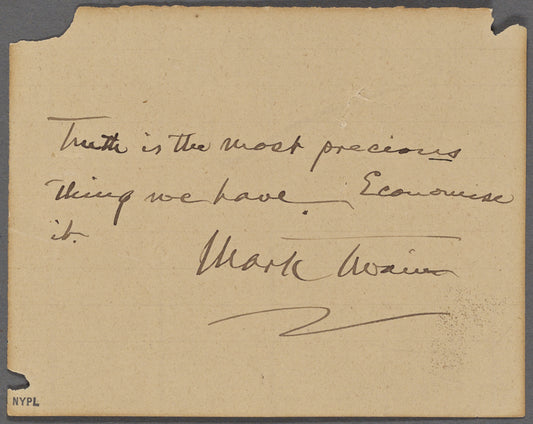 Truth is the most precious
thing we have. Economise
it.
Mark Twain
NYPL